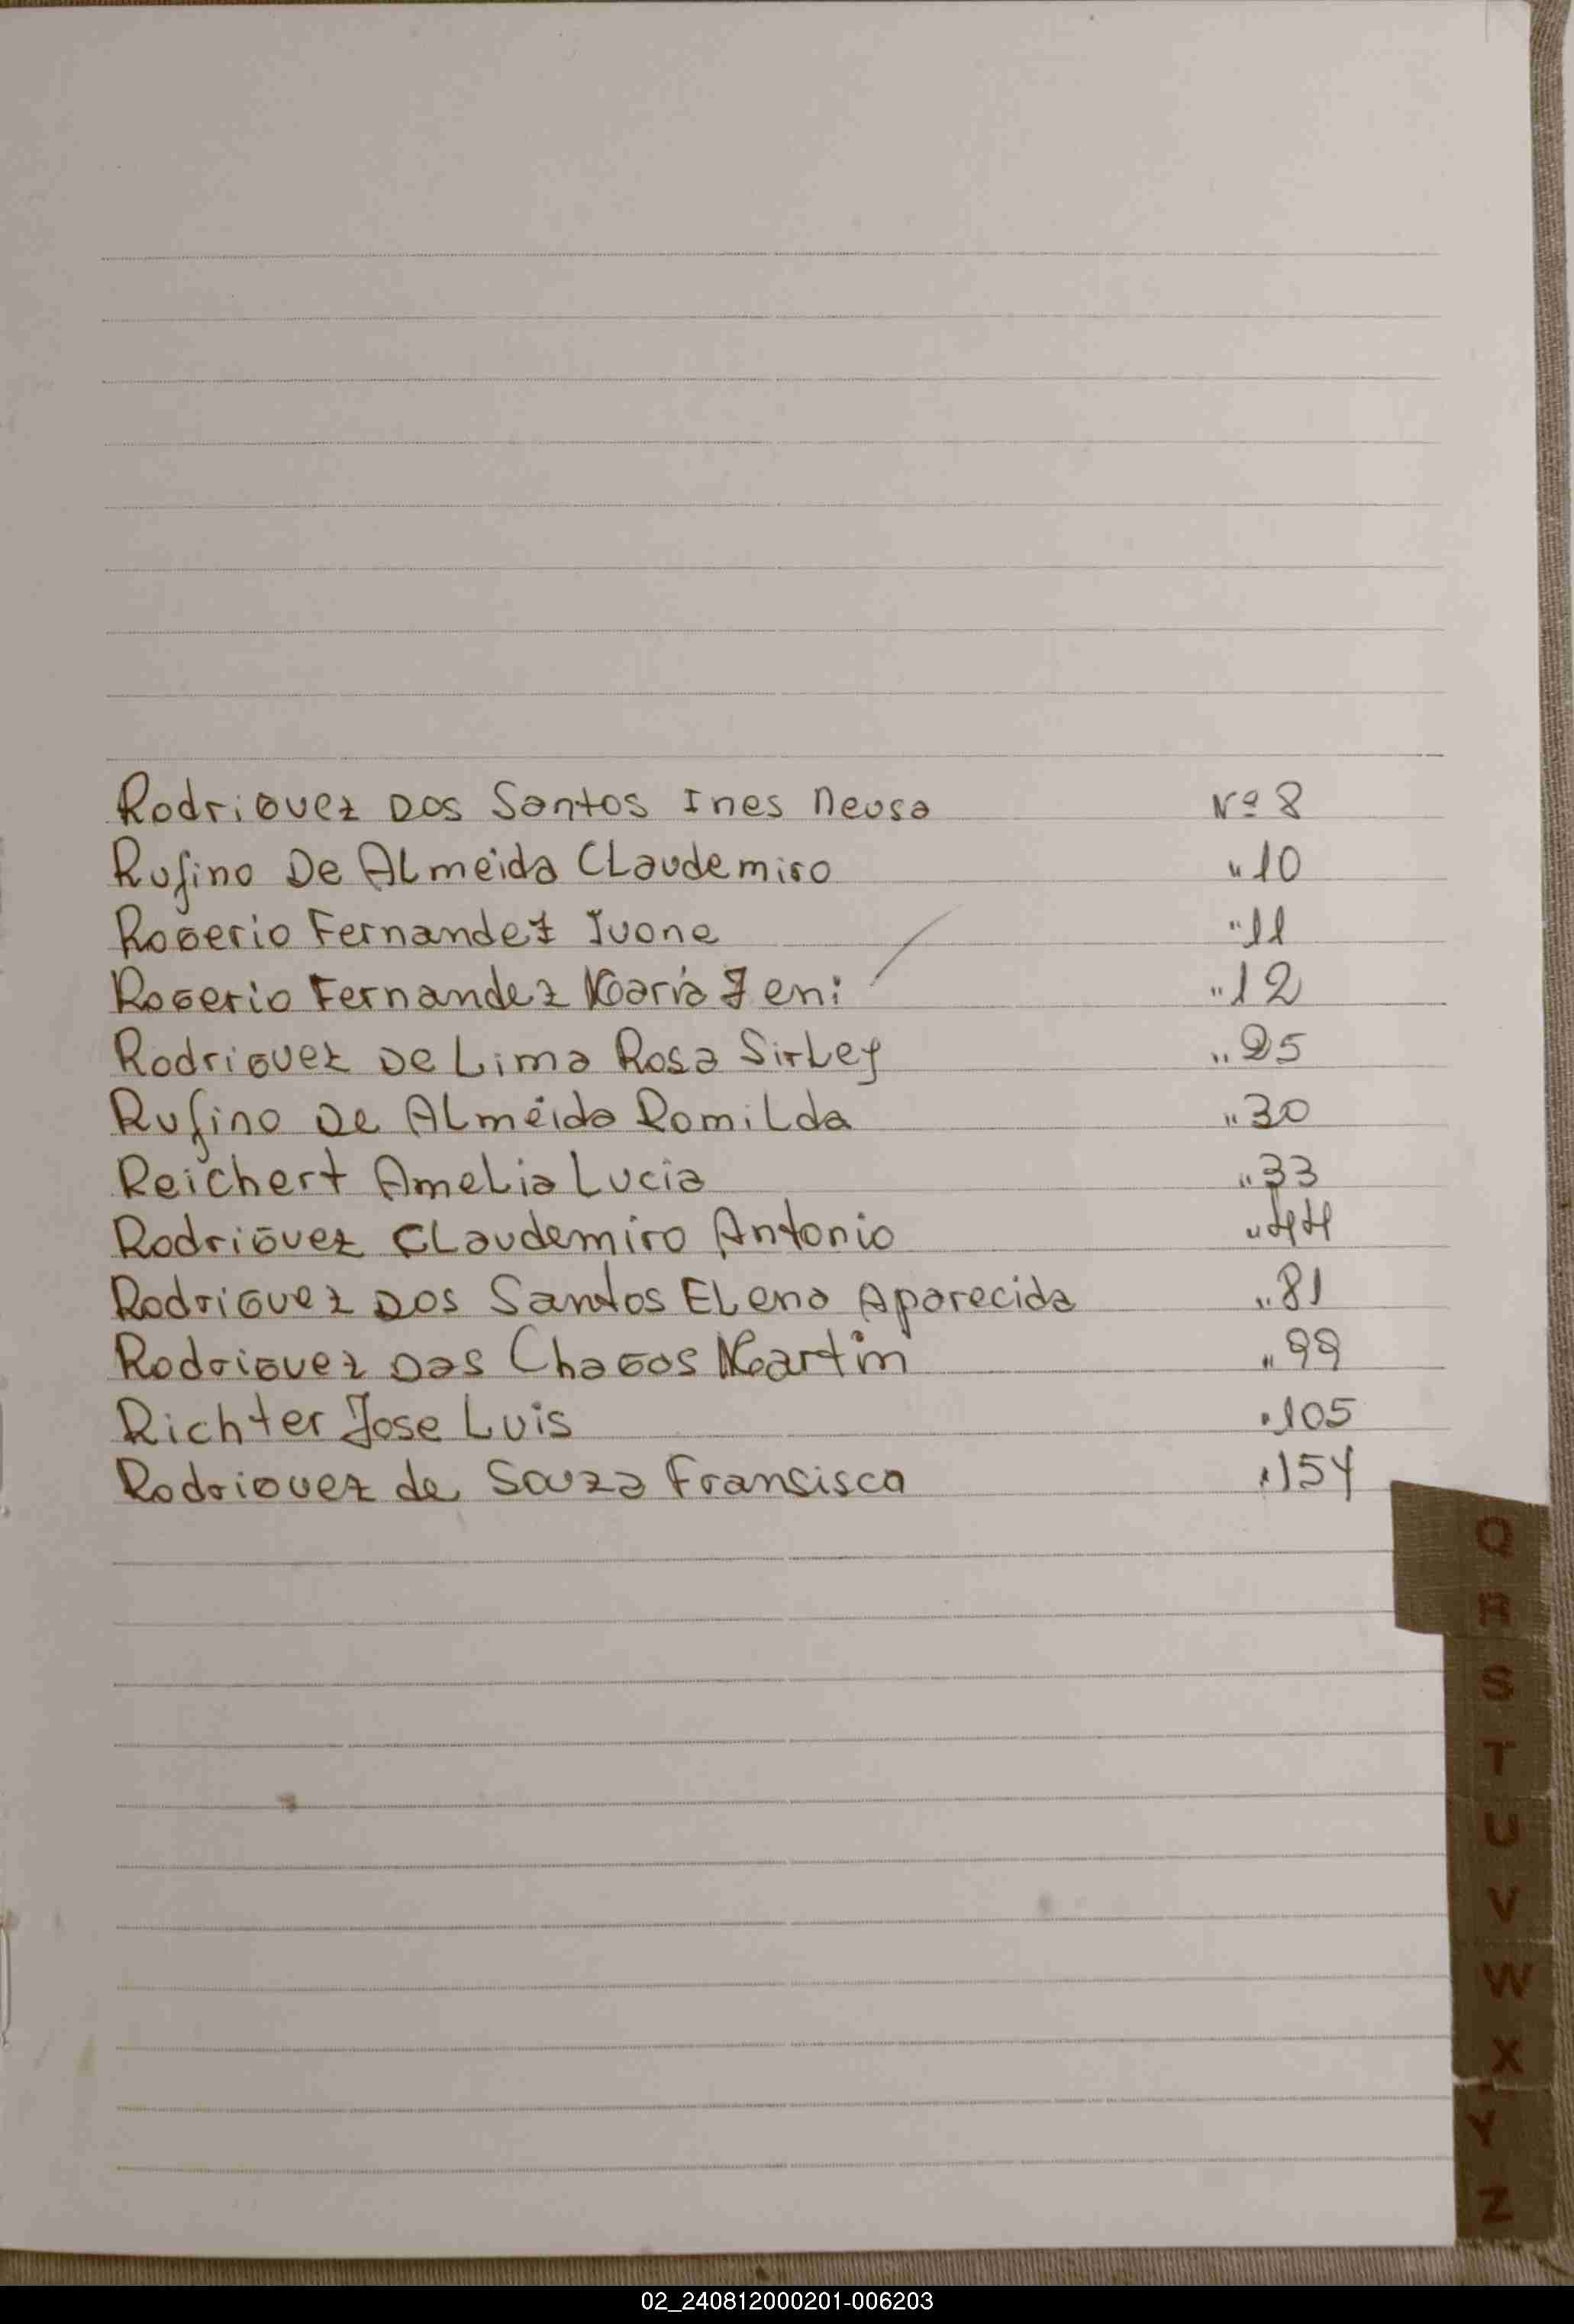 Rodriguez Dos Santos Ines Neusa Nº 8
Rufino De Almeida Claudemiro " 10
Rogerio Fernandez Ivone " 11
Rogerio Fernandez Maria Jeni " 12
Rodriguez De Lima Rosa Sirley " 25
Rufino De Almeida Romilda " 30
Reichert Amelia Lucia " 33
Rodriguez Claudemiro Antonio " 44
Rodriguez Dos Santos Elena Aparecida " 81
Rodriguez Das Chagas Martin " 99
Richter Jose Luis " 105
Rodriguez de Souza Fransisca " 154
Q
R
S
T
U
V
W
X
Y
Z
02_240812000201-006203